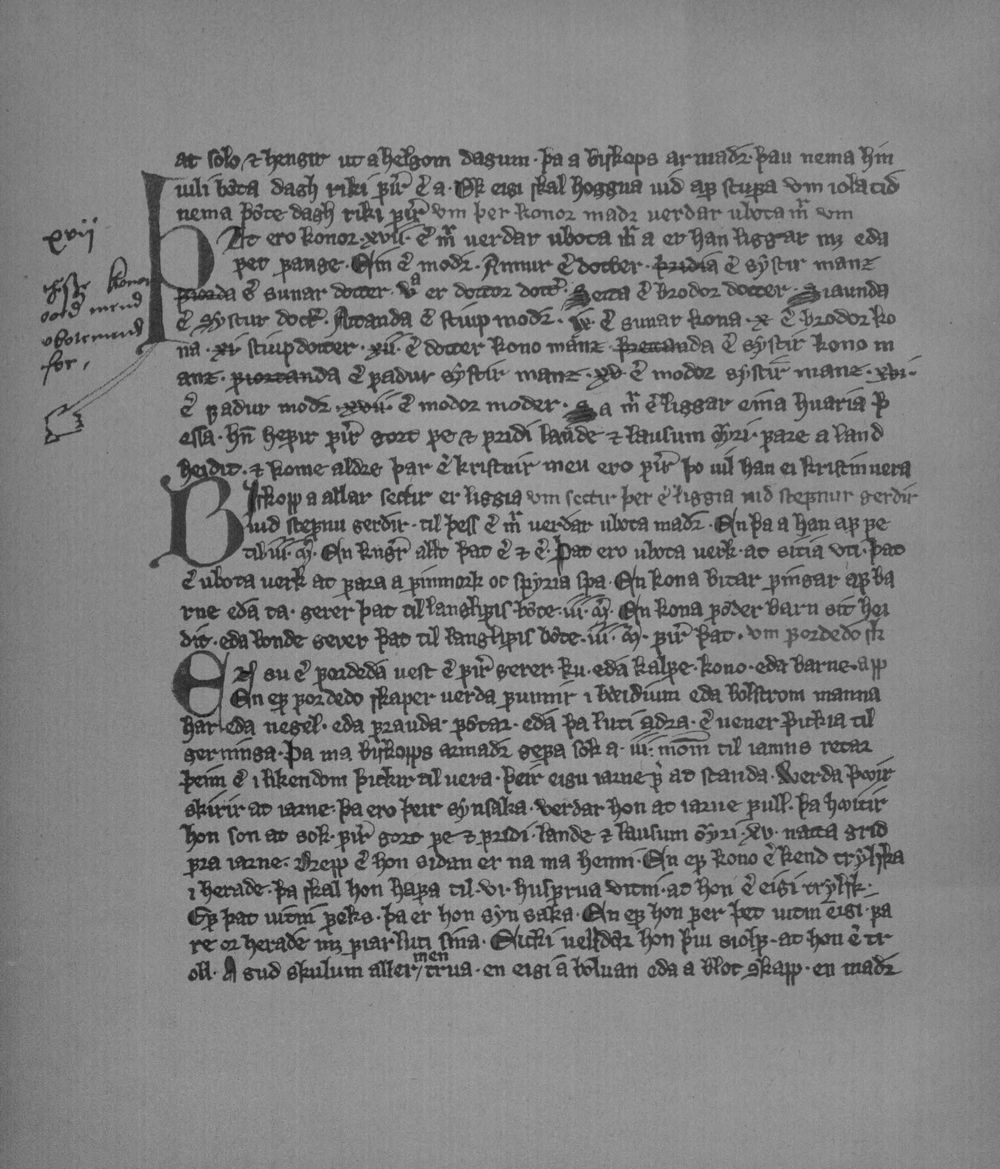 at solo ⁊ hengir ut a helgom dagum · þa a byskops armadr · þau nema hin
iuli bǿta dagh riki fyrir er a · Ok eigi skal hoggua uid af stufa um iola tid
nema þǿte dagh riki fyrir um þer konor madr uerdar ubota mr̄ um
Þat ero konor · xvii · er mr̄ uerdar ubota mr̄ a er han liggar mꝫ eda
xvii
fer fange · Ein er modr · Annur er dotter · þridia er systir manz
thesse konor
fiorda er sunar dotter · va er dottor dott · Setta er brodor dotter · Siaunda
oord mend
er Systur dott · Attanda er stiup modr · ix · er sunar kona · x · er brodor ko
vbotemend
na · xi · stiupdotter · xii · er dotter kono manz · þrettanda er systir kono m
for ,
anz · fiortanda er fadur systir manz · xv · er modor systir manz · xvi ·
er fadur modr · xvii · er modor moder · Sa mr̄ er liggar eina huaria þ
essa · hn̄ hefir fyrir gort fe ⁊ fridi lande ⁊ lausum øyri · fare a land
heidit · ⁊ kome aldre þar er kristnir men ero fyrir þo uil han ei kristin uera
Biskopp a allar sectir er liggia um sectir þer er liggia uid stefnur gerdir
uid stefnu gerdir · til þess er mr̄ uerdar ubota madr · En þa a han af fe
til iii · mr̄ · En kngr̄ alt þat er ⁊ er · Þat ero ubota uerk · at sitia uti · þat
er ubota uerk at fara a finmork oc spyria spa · En kona bitar fingar af ba
rne eda ta · gerer þat til langlifis bǿte · iii · mr̄ · En kona føder barn sit hei
dit · eda bonde gever þat til langlifis bǿte · iii · mr̄ · fyrir þat · um fordedo sk
En su er fordeda uest er fyrir gerer · ku · eda kalfe · kono · eda barne · app
En ef fordedo skaper uerda funnir i bædium eda bolstrom manna
har · eda negel · eda frauda føtar · eda þa luti adra · er uener þickia til
gerninga · Þa ma byskopps armadr gefa sok a · iii · mom̄ til iamns retar
þeim er i likendom þickir til uera · þeir eigu iarne fyr at standa · Uerda þwir
skirir at iarne · þa ero þeir synsaka · verdar hon at iarne full · þa hwitir
hon son at sok · fyrir gort fe ⁊ fridi · lande ⁊ lausum øyri · xv · natta grid
fra iarne · Drepp er hon sidan er na ma henni · En ef kono er kend trylska
i herade · þa skal hon hafa til · vi · husfrua vitni · at hon er eigi trylsk ·
Ef þat uitni feks · þa er hon syn saka · En ef hon fer þet uitni eigi · fa
re or herade mꝫ fiarluti sina · Eicki ueldar hon þui siolf · at hon er tr
oll · A gud skulum aller men trua · en eigi a bøluan eda a blot skapp · en madr